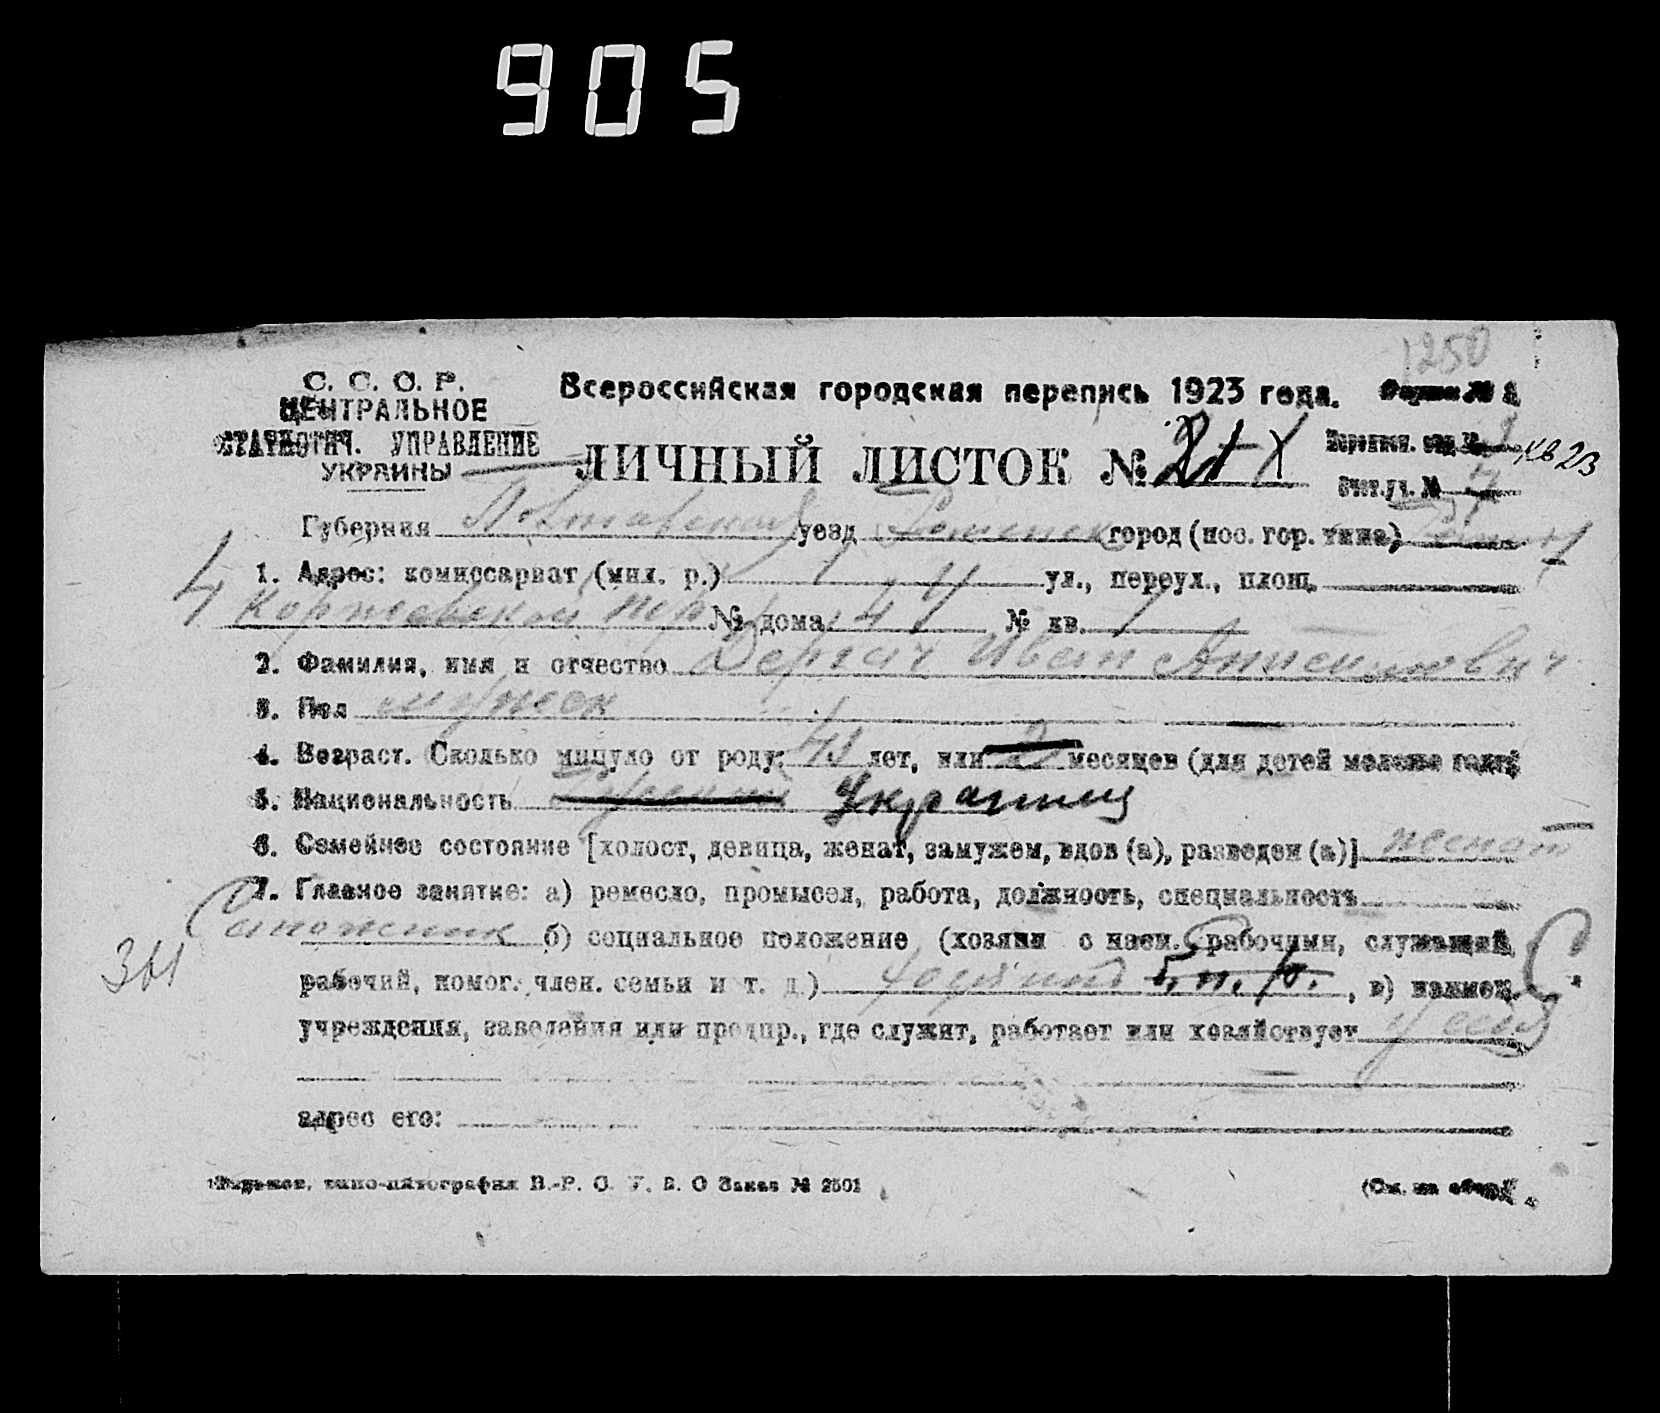 905
1250
С. С. С. Р. Всероссийская городская перепись 1923 года. Форма № 2
ЦЕНТРАЛЬНОЕ
СТАТИСТИЧ. УПРАВЛЕНИЕ
УКРАИНЫ
ЛИЧНЫЙ ЛИСТОК №
Переписн. отд. №
кв 23
Счет. уч. №
Губерния Полтавская уезд Роменск город (пос. гор. типа) Ромны
1. Адрес: комиссариат (мил. р.) ул., переул., площ.
Коржевской пер № дома № кв. 1
2. Фамилия, имя и отчество Дергач Иван
3. Пол мужск
4. Возраст. Сколько минуло от роду: 43 лет, или месяцев (для детей моложе года)
5. Национальность Русский Украинец
6. Семейное состояние [холост, девица, женат, замужем, вдов (а), разведен (а)] женат
7. Главное занятие: а) ремесло, промысел, работа, должность, специальность
Сапожник б) социальное положение (хозяин с наем. рабочими, служащий,
361
рабочий, помог. член. семьи и т. д.) , в) наимен.
учреждения, заведения или предпр., где служит, работает или хозяйствует у себя
адрес его:
В.-Р. С. У. В. О Заказ № 2501
(См. на обор.)